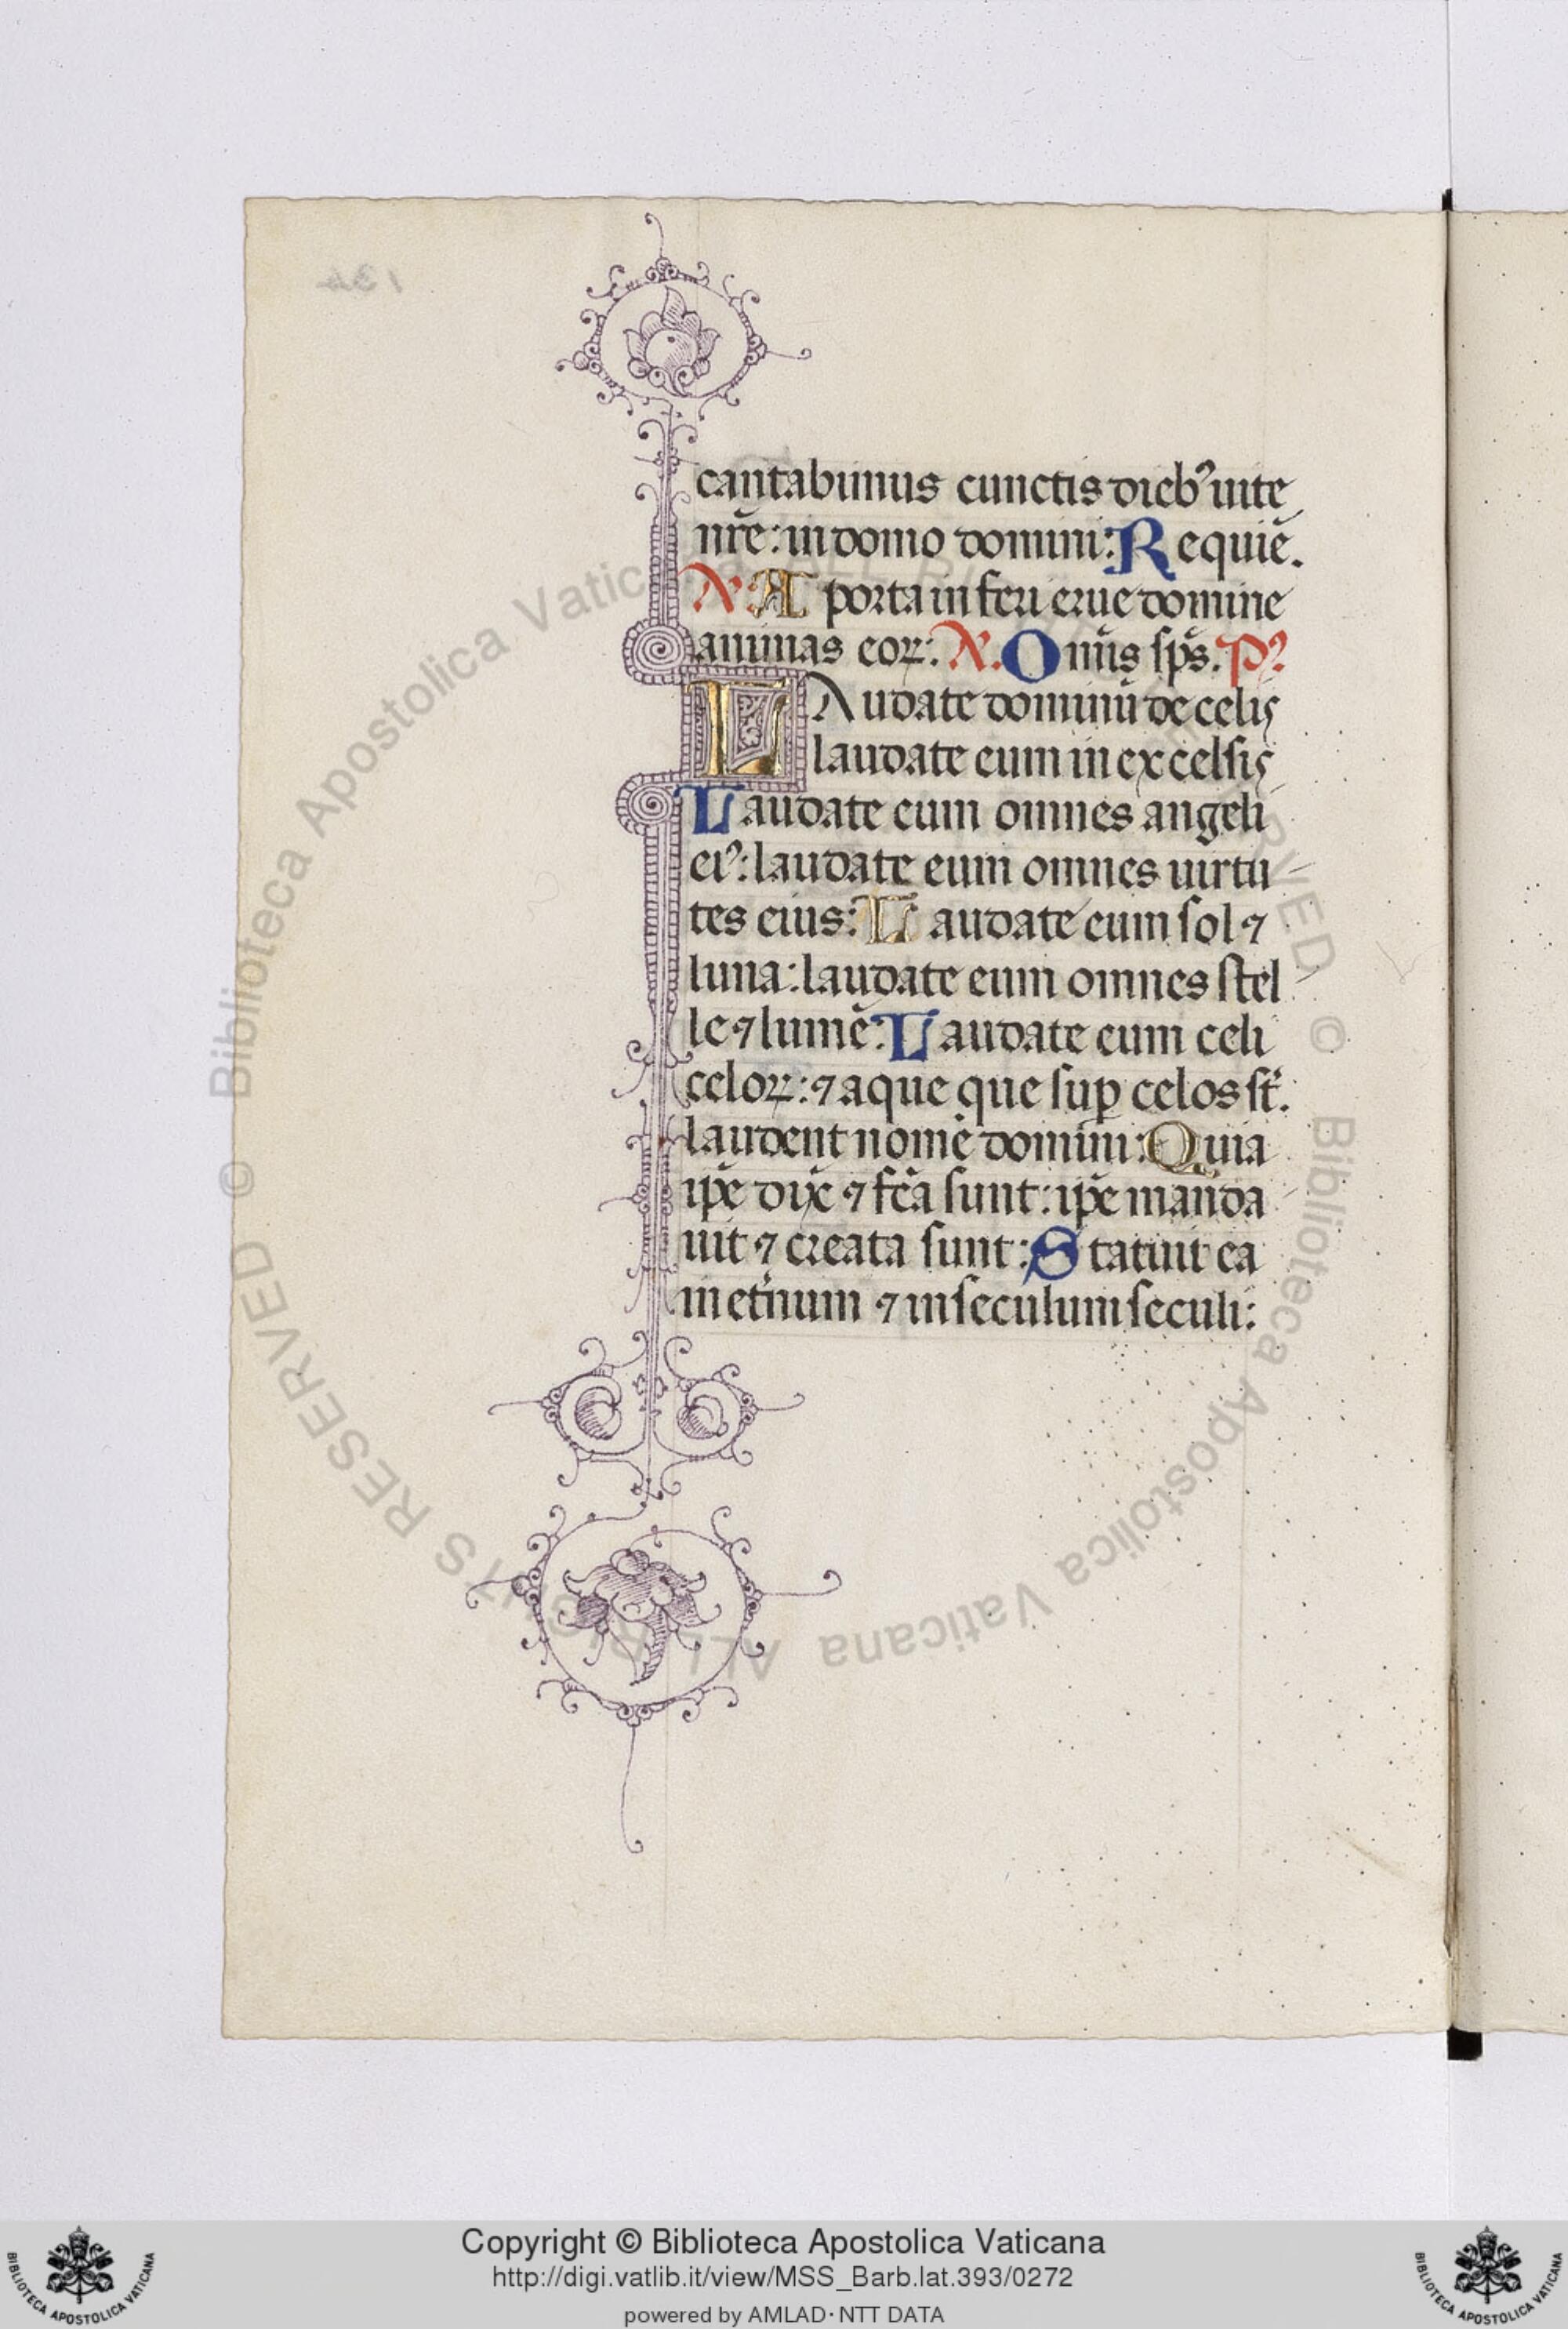 cantabimus cunctis dieb᾽ uite
nr̃e: in domo domini: Requiẽ.
A᷎. A porta inferi erue domine
animas eoꝝ: A᷎. Om̃is sp̃s. p᾽
LAudate dominũ de celis
laudate eum in excelsis
Laudate eum omnes angeli
ei᾽: laudate eum omnes uirtu
tes eius: Laudate eum sol ⁊
luna: laudate eum omnes stel
le ⁊ lumẽ: Laudate eum celi
celoꝝ: ⁊ aque que suꝑ celos st̃.
laudent nomẽ domini: Quia
ip̃e dix̃ ⁊ fc̃a sunt: ip̃e manda
uit ⁊ creata sunt: Statuit ea
in et̃num ⁊ in seculum seculi:
© Biblioteca Apostolica Vaticana ALL RIGHTS RESERVED © Biblioteca Apostolica Vaticana ALL RIGHTS RESERVED
Copyright © Biblioteca Apostolica Vaticana
http://digi.vatlib.it/view/MSS_Barb.lat.393/0272
powered by AMLAD · NTT DATA
BIBLIOTECA APOSTOLICA VATICANA
BIBLIOTECA APOSTOLICA VATICANA